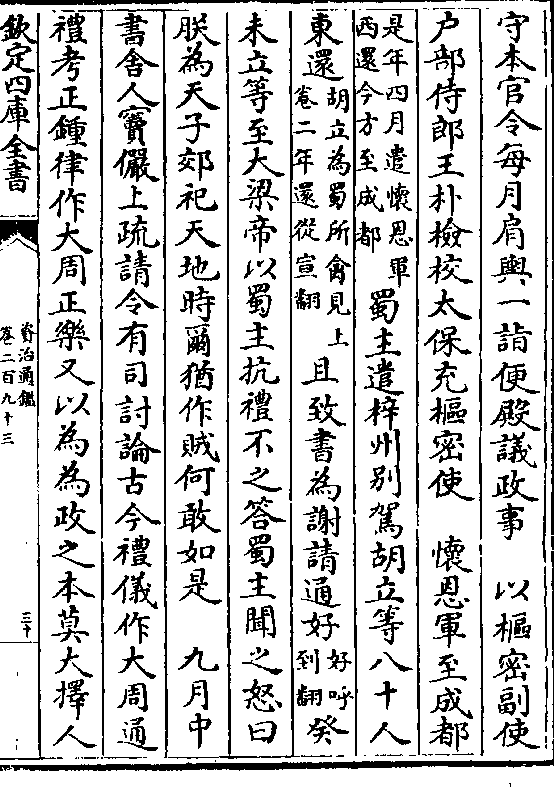 守本官令每月肩輿一詣便殿議政事　以樞密副使
户部侍郎王朴檢校太保充樞密使　懷恩軍至成都
是年四月遣懷恩軍
西還今方至成都
蜀主遣梓州别駕胡立等八十人
東還
胡立為蜀所禽見上
卷二年還從宣翻
且致書為謝請通好
好呼
到翻
癸
未立等至大梁帝以蜀主抗禮不之答蜀主聞之怒曰
朕為天子郊祀天地時爾猶作賊何敢如是　九月中
書舍人竇儼上疏請令有司討論古今禮儀作大周通
禮考正鍾律作大周正樂又以為為政之本莫大擇人
欽定四庫全書
資治通鑑
卷二百九十三
三十